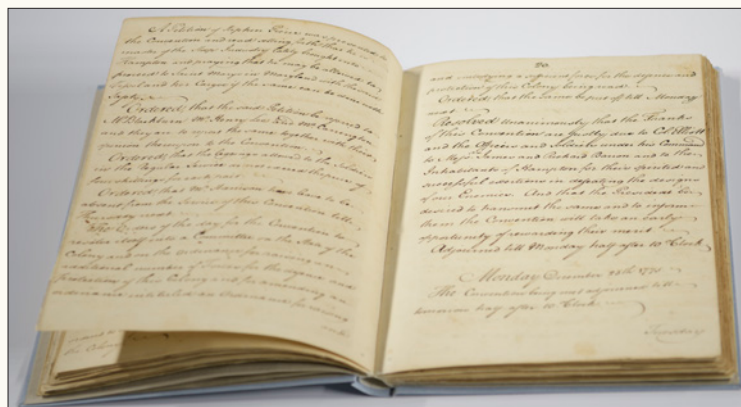 A Petition of Stephen        was presented to
the Convention and read setting forth that he is
master of the Sloop          lately brought into
Hampton and praying that he may be allowed to
proceed to Saint Mary's in Maryland with the said
Vessel and her Cargo if the same can be done with
safety.
Ordered, that the said Petition be referred to
Mr. Blackburn Mr. Henry Lee and Mr. Carrington
and they are to report the same together with their
opinion thereupon to the Convention.
Ordered, that the         allowed to the Soldiers
in the Regular Service                   the price of
four shillings for each
Ordered that Mr. Harrison have leave to be
absent from the Service of this Convention till
Thursday next
The Order of the day for the Convention to
resolve itself into a Committee on the State of the
Colony and on the ordinance for raising an
additional number of Forces for the defence and
Protection of this Colony and for amending an
ordinance intituled an Ordinance for raising
and
the Colony
20.
and embodying a sufficient force for the defence and
protection of this Colony being read.
Ordered that the same be put off till Monday
next.
Resolved unanimously that the Thanks
of this Convention are justly due to Col.
and the Officers and Soldiers under his Command
to Mess.s James and Richard Barron and to the
Inhabitants of Hampton for their spirited and
successful             in                the designs
of our Enemies. And that the President be
desired to transmit the same and to inform
them the Convention will take an early
opportunity of rewarding their merit.
Adjourned till Monday half after 10 Clock
Monday December 25th 1775
The Convention being met adjourned till
tomorrow half after 10 Clock.
Tuesday